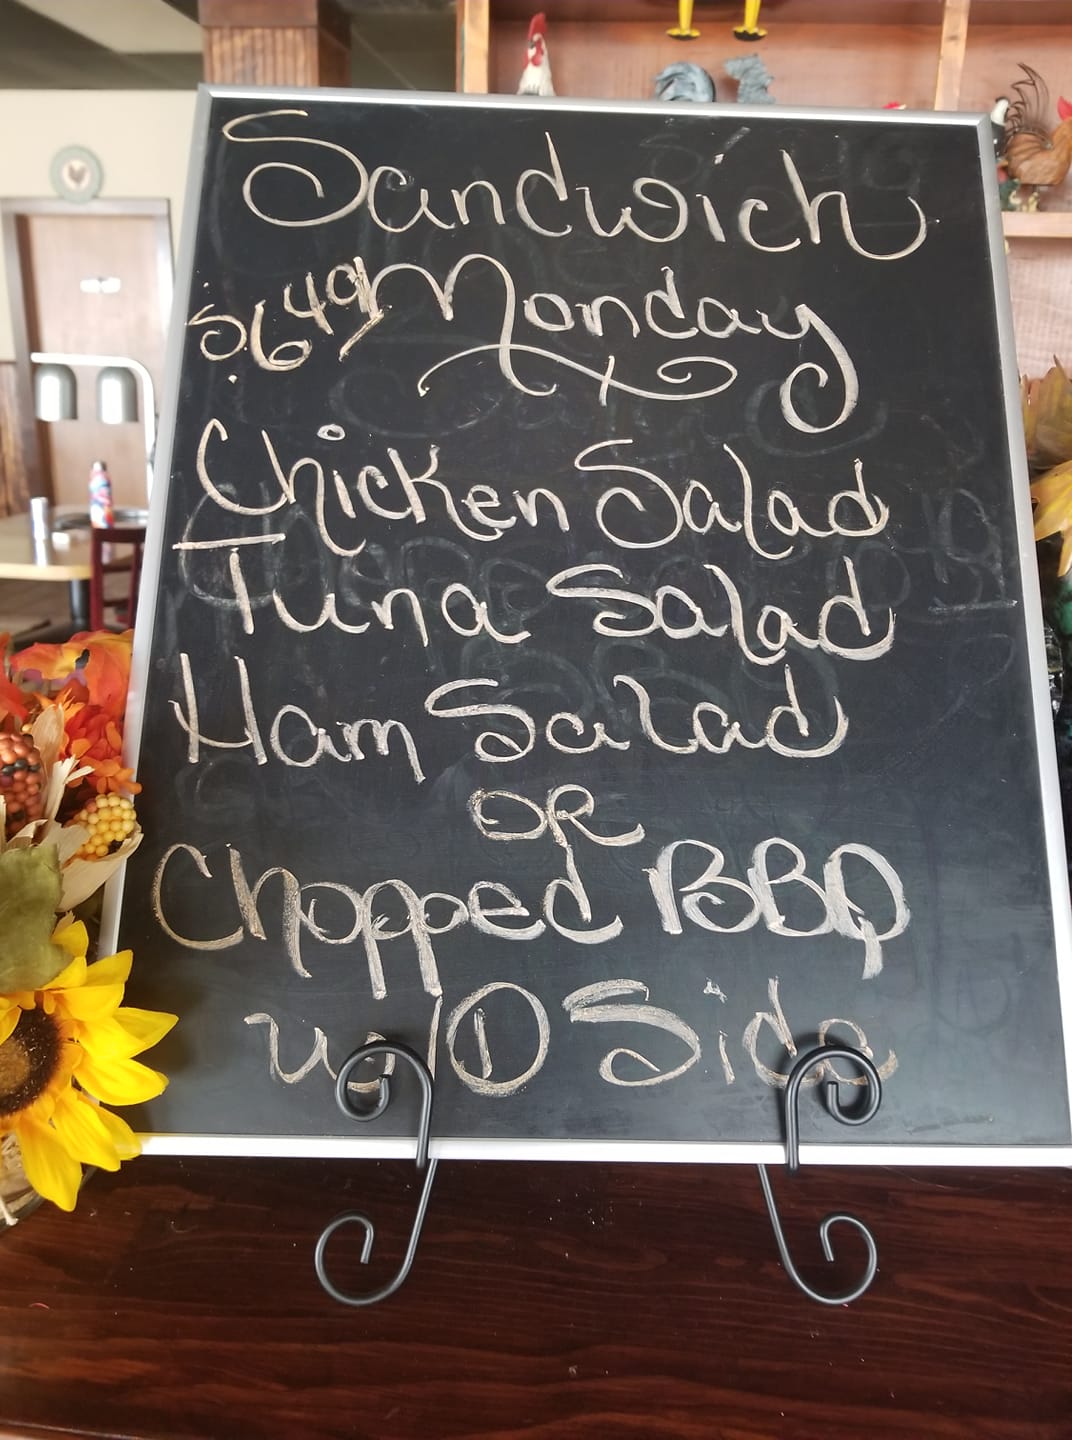 Sandwich
$6.49 Monday
Chicken Salad
Tuna Salad
Ham Salad
OR
Chopped BBQ
w/1 Side